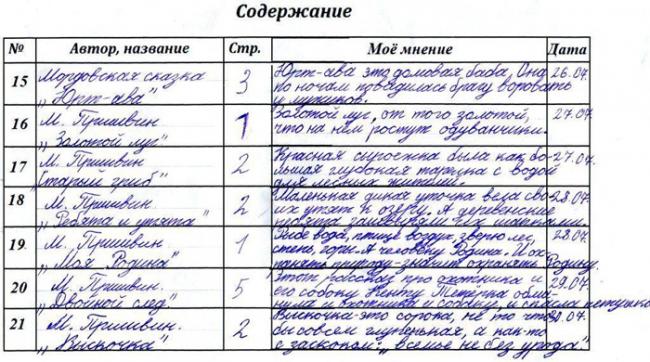 Содержание
№ Автор, название Стр. Моё мнение Дата
15 Мордовская сказка „Юрт-ава" 3 Юрт-ава это домовая баба. Она по ночам повадилась брагу воровать у мужиков. 26.07.
16 М. Пришвин „Золотой луг" 1 Золотой луг, от того золотой, что на нём растут одуванчики. 27.07.
17 М. Пришвин „Старый гриб" 2 Красная сыроежка была как большая глубокая тарелка с водой для лесных жителей. 27.07.
18 М. Пришвин. „Ребята и утята" 2 Маленькая дикая уточка вела своих утят к озеру. А деревенские ребята закидали их шапками. 28.07.
19. М. Пришвин. „Моя Родина" 1 Рыбе вода, птице воздух, зверю лес, степь, горы. А человеку Родина. И охранять природу значит охранять Родину. 28.07.
20 М. Пришвин. „Двойной след" 5 Этот рассказ про охотника и его собаку Кенту. Тетёрка обманула охотника и собаку, а спасла петушка 29.07.
21 М. Пришвин. „Выскочка" 2 Выскочка-это сорока, не то что бы совсем глупенькая, а как-то с заскоком. „в семье не без урода" .07.